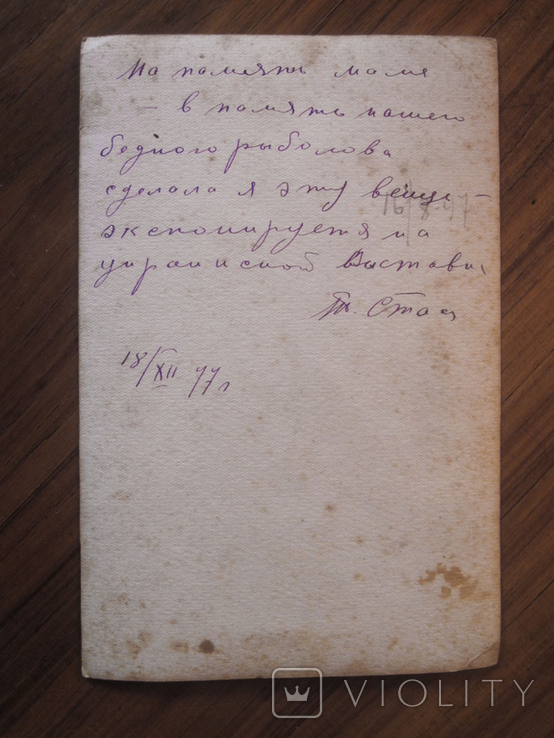 На память маме
– в память нашего
бедного рыболова
сделала я эту вещь –
экспонируется на
украинской выставке
Т. Стах
18/XII 47 г
VIOLITY